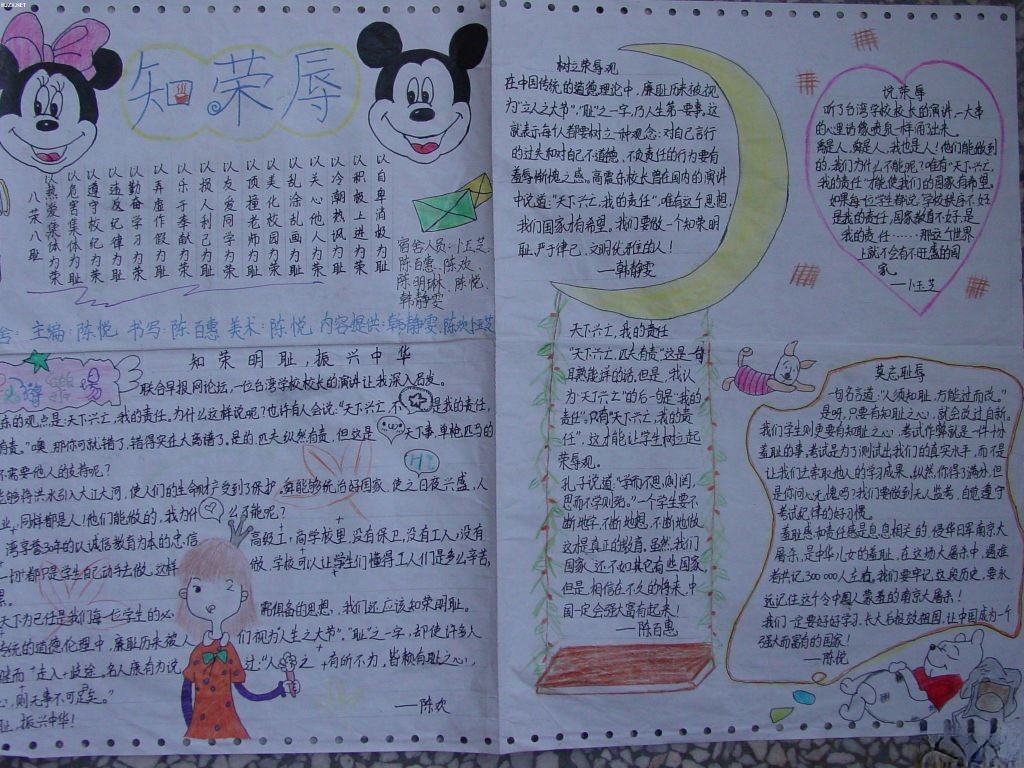 知荣辱
以自卑消极为耻
以积极上进为荣
以冷潮热讽为耻
以关心他人为荣
以乱涂乱画为耻
以美化校园为荣
以顶撞老师为耻
以友爱同学为荣
以损人利己为耻
以乐于奉献为荣
以弄虚作假为耻
以勤奋学习为荣
以违反纪律为耻
以遵守校纪为荣
以危害集体为耻
以热爱集体为荣
八荣八耻
宿舍人员:卜玉芝、
陈百惠、陈欢、
陈明琳、陈悦、
韩静雯
主编:陈悦 书写:陈百惠 美术:陈悦 内容提供:韩静雯、陈欢、卜玉芝
知荣明耻,振兴中华
联合早报网论坛,一位台湾学校校长的演讲让我深入启发。
的观点是:天下兴亡,我的责任。为什么这样说呢?也许有人会说:“天下兴亡,不是我的责任,
”噢,那你可就错了,错得实在太离谱了。是的,匹夫纵然有责,但这是天下事,单枪匹马的
不需要他人的支持呢?
能够将洪水引入大江大河,使人们的生命财产受到了保护,舜能够统治好国家,使之日夜兴盛,人
业,同样都是人!他们能做的,我为什么不能呢?
湾享誉30年的以诚信教育为本的忠信高级工商学校里,没有保卫,没有工人,没有
一切都只是学生自己动手去做,这样做,学校可以让学生们懂得工人们是多么辛苦,
天下为己任是我们每一位学生的必需俱备的思想,我们还应该知荣明耻。
传统的道德伦理中,廉耻历来被人们视为人生之大节”。“耻”之一字,却使许多人
继而“走入歧途。名人康有为说过:“人之有所不为,皆赖有耻之心,
心,则无事不可为矣。”
耻,振兴中华!
——陈欢
树立荣辱观
在中国传统的道德理论中,廉耻历来被视
为“立人之大节”。“耻”之一字,乃人生第一要事,这
就表示每个人都要树立一种观念:对自己言行
的过失和对自己不道德、不负责任的行为要有
羞辱惭愧之感。高震东校长曾在国内的演讲
中说道:“天下兴亡,我的责任”,唯有这个思想,
我们国家才有希望。我们要做一个知荣明
耻,严于律己,文明化开性的人!
——韩静雯
天下兴亡,我的责任
“天下兴亡,匹夫有责”这是句
耳熟能详的话,但是,我认
为“天下兴亡”的后一句是“我的
责任”。只有“天下兴亡,我的责
任”,这才能让学生树立起
荣辱观。
孔子说道:“学而不思,则罔,
思而不学则殆。”一个学生要不
断地学,不断地想,不断地做。
这才是真正的教育。虽然,我们
国家,还不如其它有些国家,
但是,相信在不久的将来,中
国一定会强大富有起来!
——陈百惠
说荣辱
听了台湾学校校长的演讲,一大串
的心里话像喷泉一样涌了出来。
禹是人,舜是人,我也是人!他们能做到
的,我们为什么不能呢?唯有“天下兴亡,
我的责任”才能使我们的国家有希望。
如果每位学生都说:学校秩序不好,
是我的责任,国家教育不好,是
我的责任……那这个世界
上就不会有不旺盛的国
家。
——卜玉芝
莫忘耻辱
一句名言道:“人须知耻,方能过而改。”
是呀,只要有知耻之心,就会改过自新。
我们学生则更要有知耻之心,考试作弊就是一件十分
羞耻的事,考试是为了测试出我们的真实水平,而不是
让我们去索取他人的学习成果,纵然你得了满分,但
是你问心无愧吗?我们要做到无人监考,自觉遵守
考试纪律的好习惯。
羞耻感和责任感是息息相关的,侵华日军南京大
屠杀,是中华儿女的羞耻,在这场大屠杀中,遇难
者共记300000人左右,我们要牢记这段历史,要永
远记住这个令中国人蒙羞的南京大屠杀!
我们一定要好好学习,长大后报效祖国,让中国成为一个
强大而富有的国家!
——陈悦